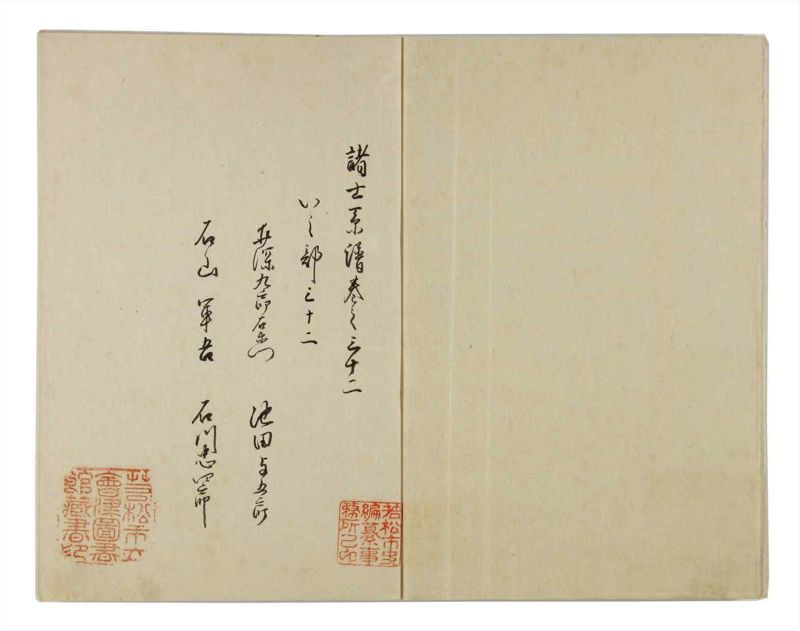 諸士系譜巻之三十二
いノ部三十二
井深九郎右衛門 池田与五郎
石山軍吾 石川忠四郎
若松市史
編纂事
務所之印
若松市立
會津圖書
館藏書印